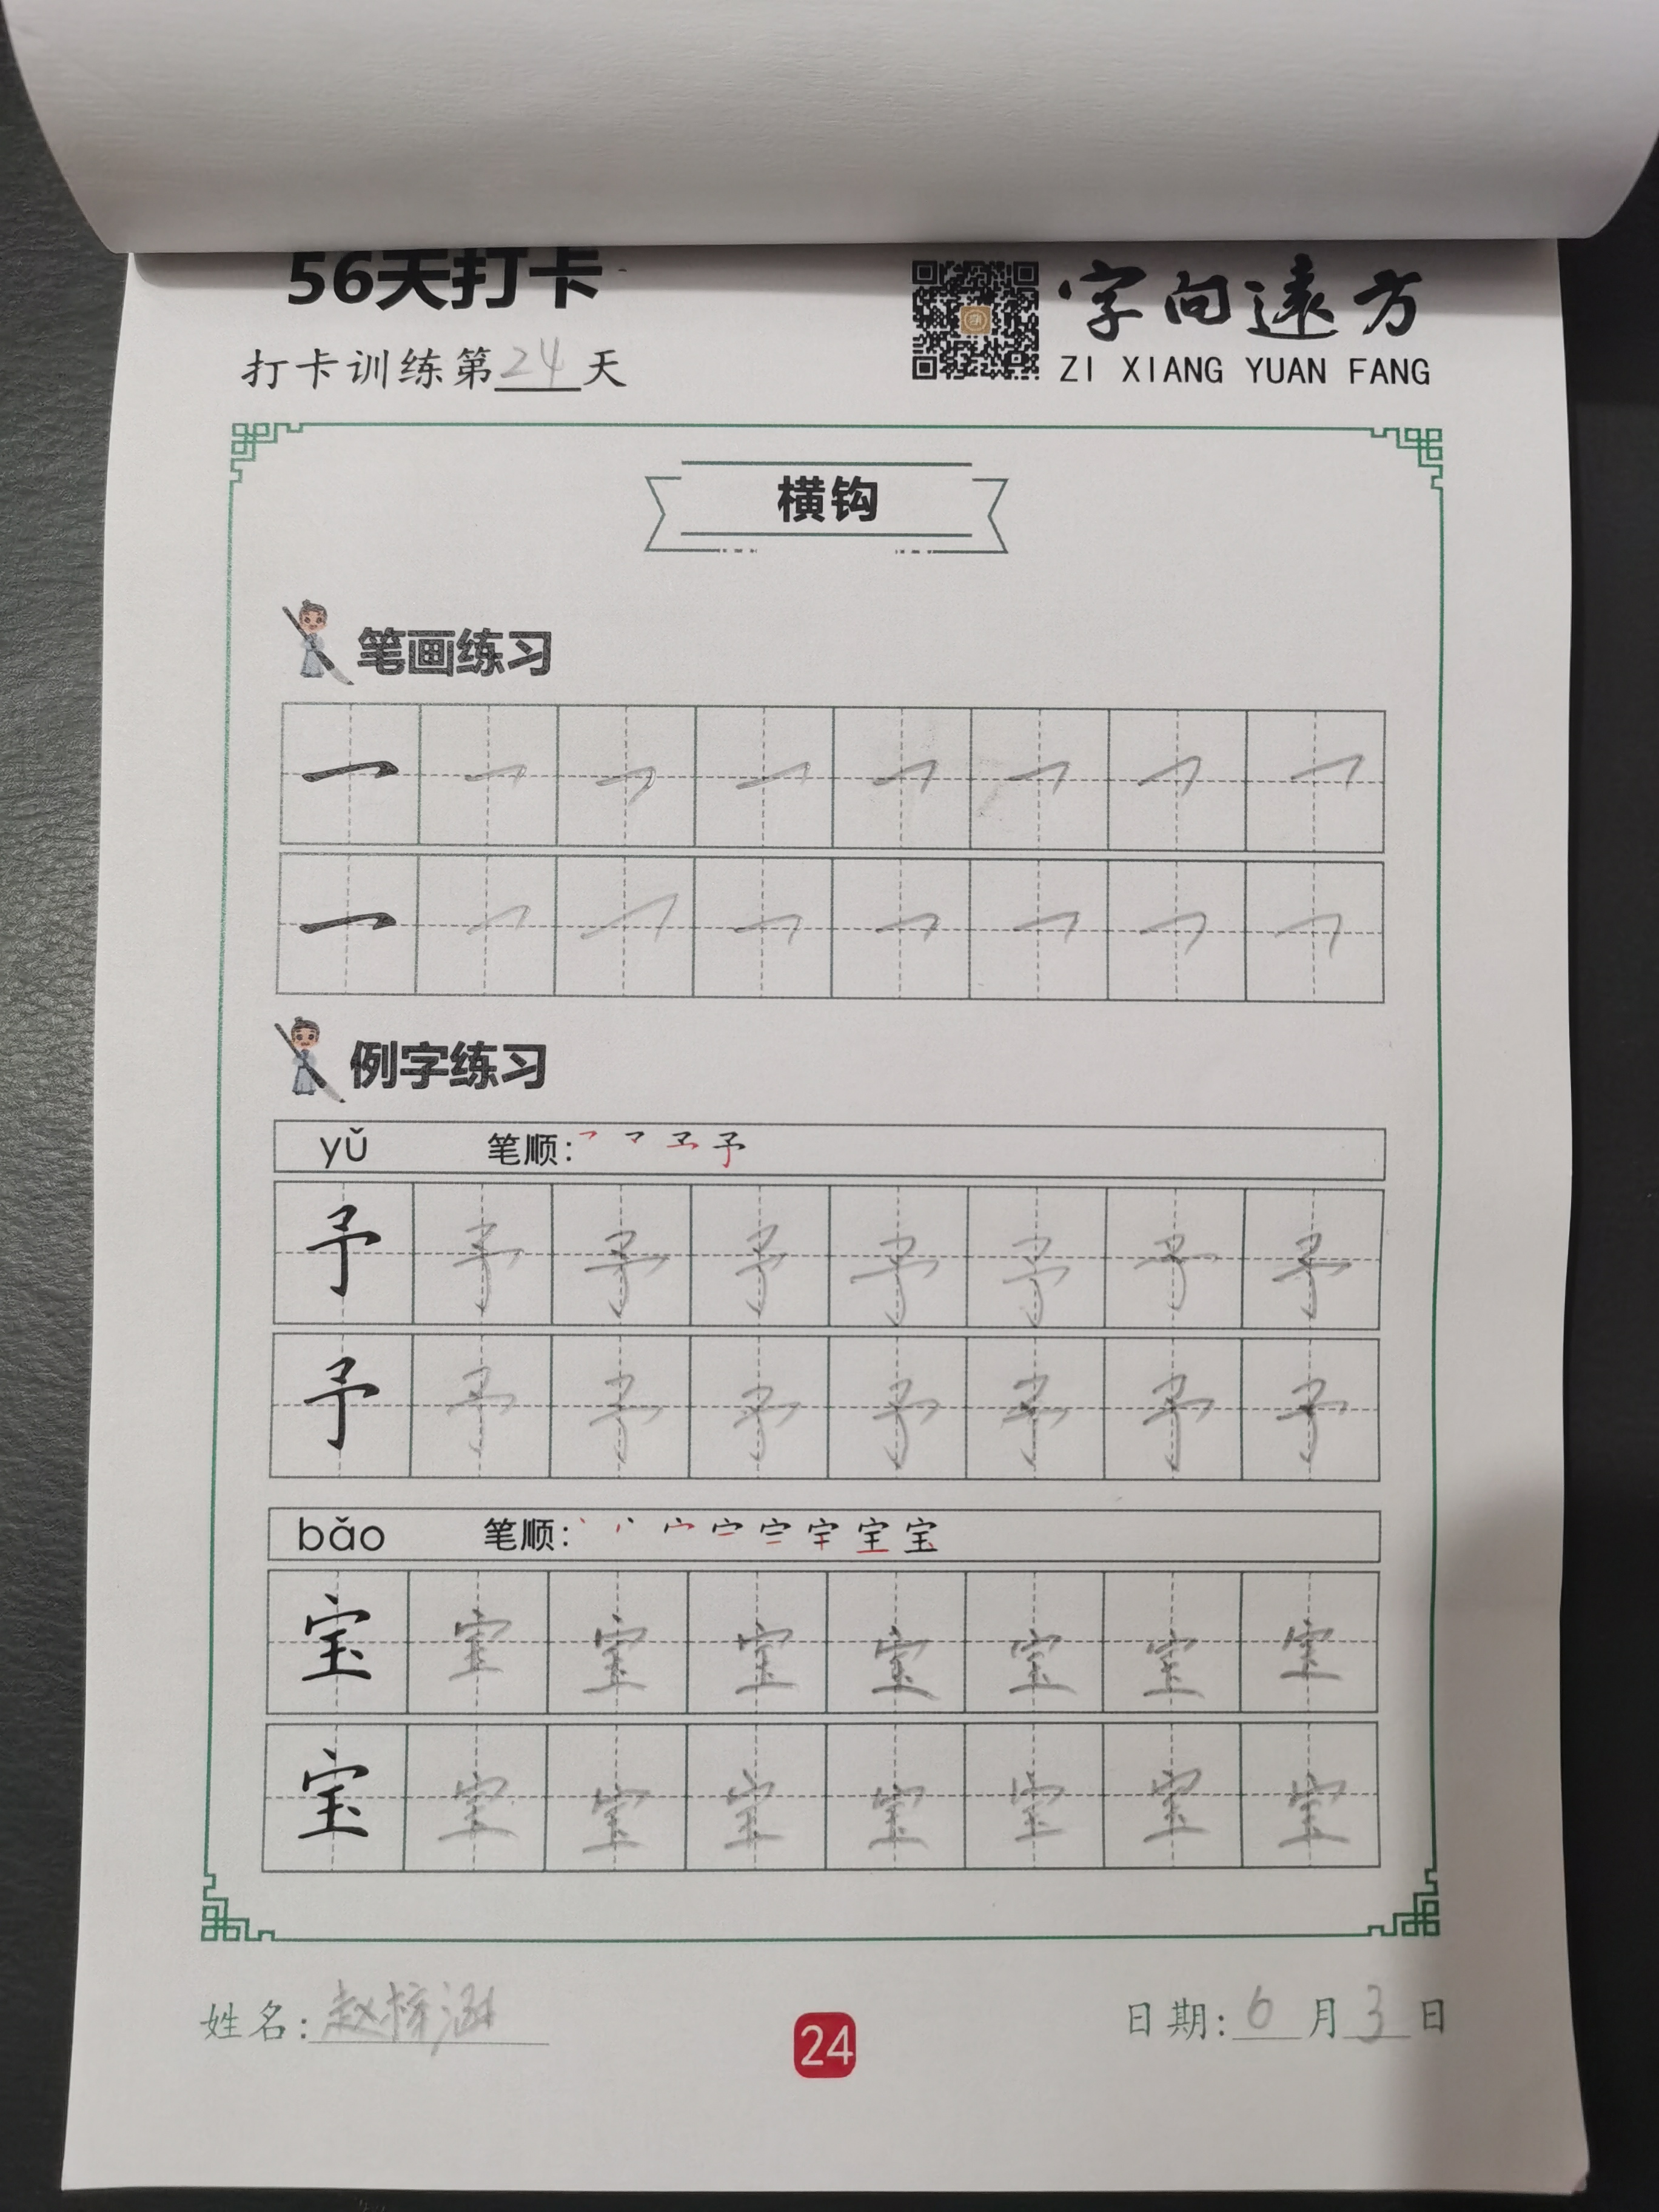 56天打卡
打卡训练第24天
字向遠方
ZI XIANG YUAN FANG
横钩
笔画练习
例字练习
yǔ 笔顺: 予
予 予 予 予 予 予 予 予
予 予 予 予 予 予 予 予
bǎo 笔顺: 宝
宝 宝 宝 宝 宝 宝 宝 宝
宝 宝 宝 宝 宝 宝 宝 宝
姓名: 赵梓涵
24
日期: 6月3日